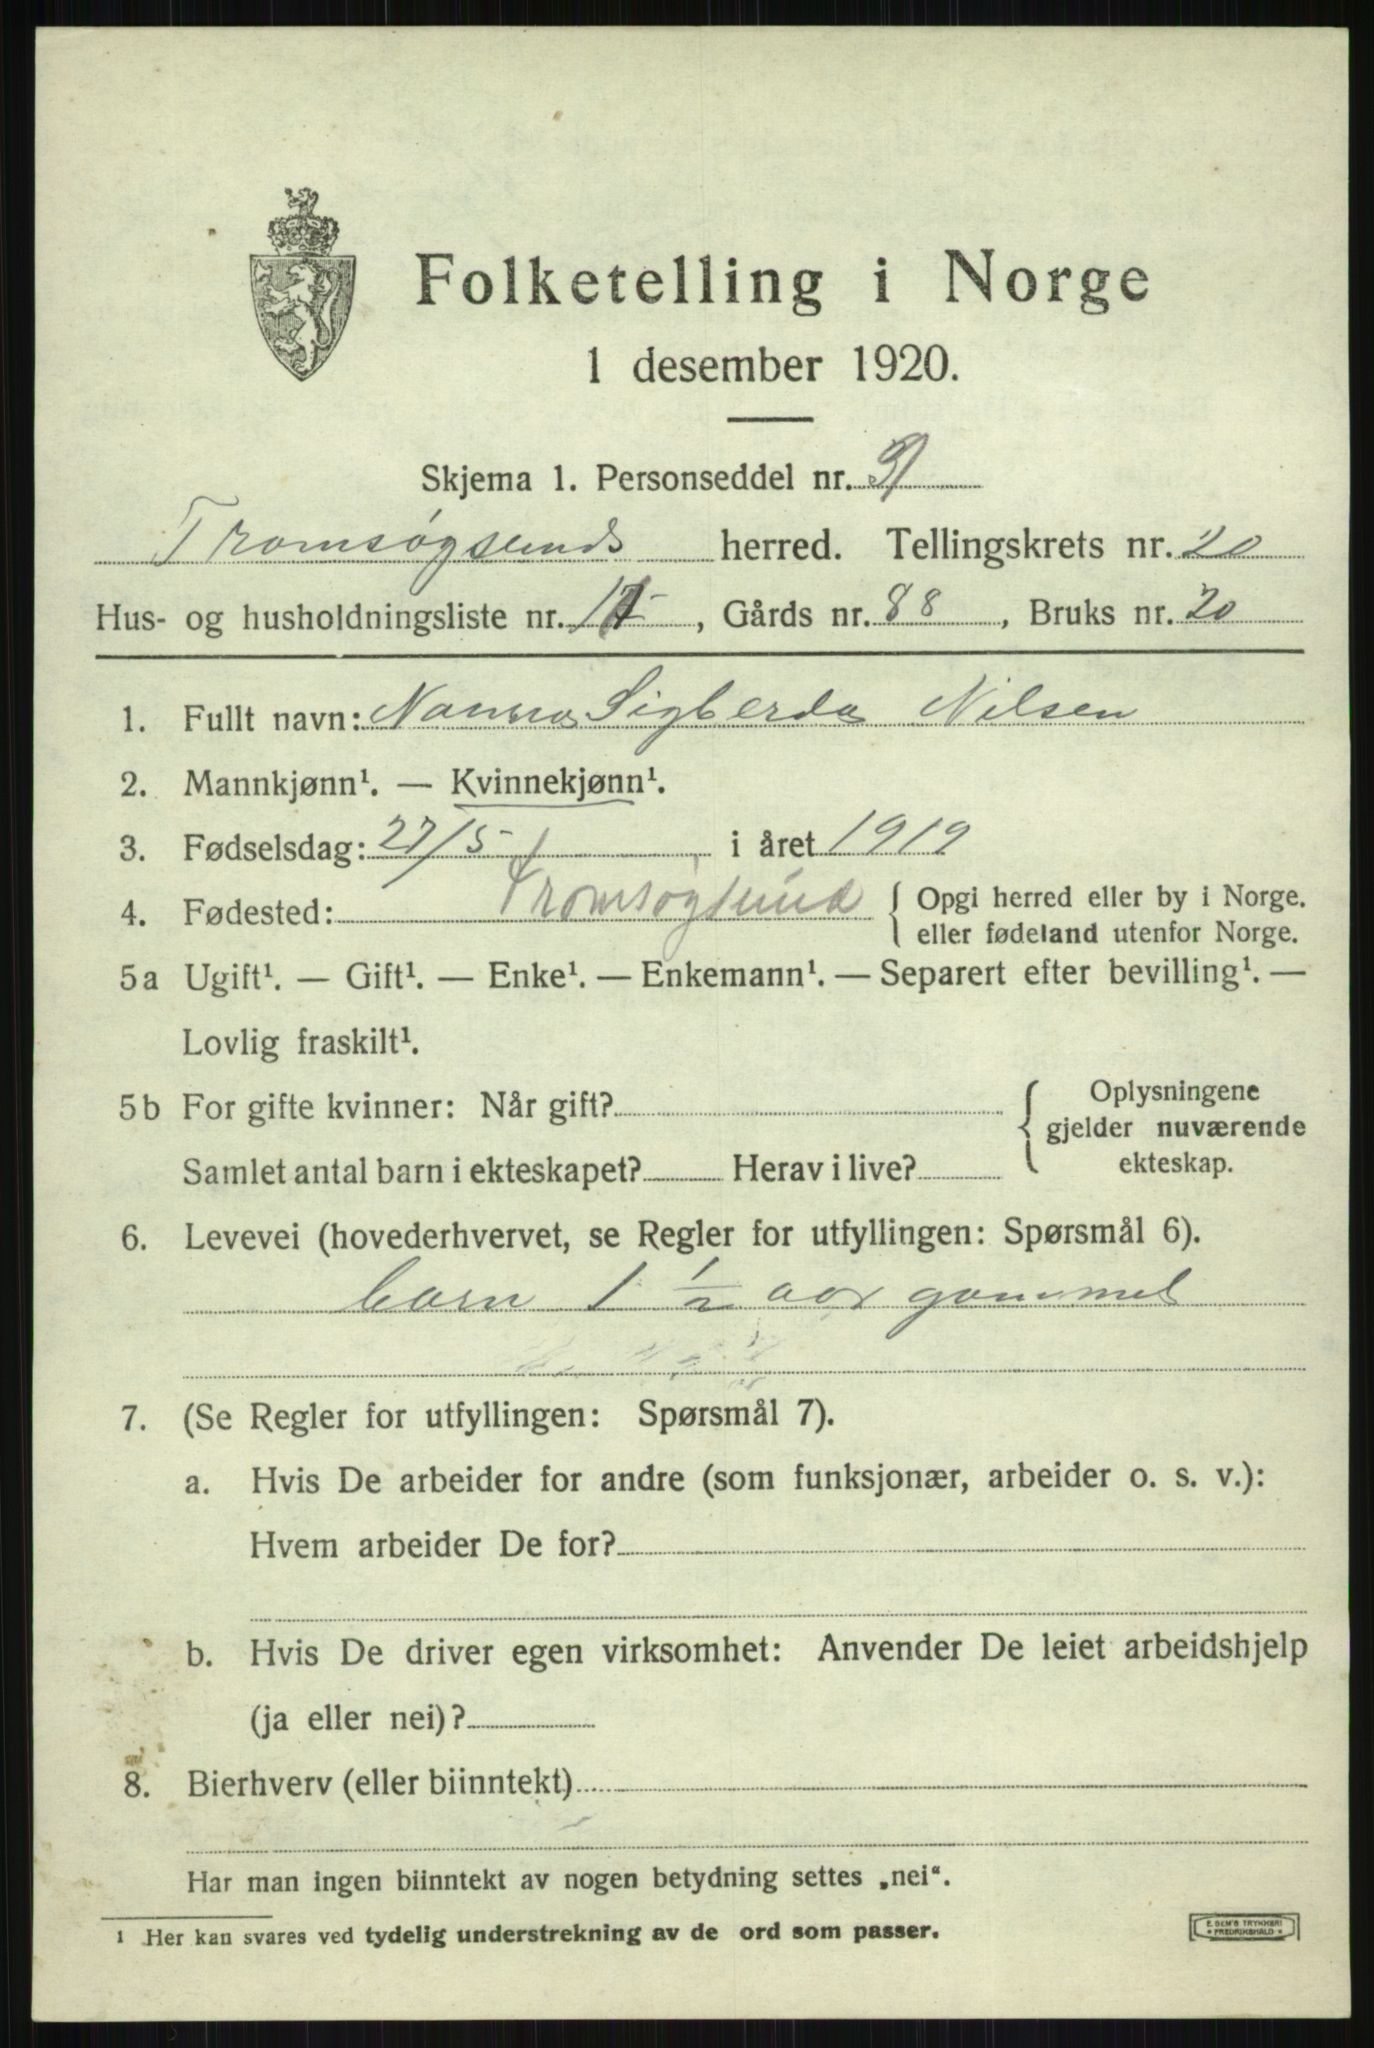 Folketelling i Norge
1 desember 1920.
Skjema 1. Personseddel nr. 9
Tromsøysunds herred. Tellingskrets nr. 20
Hus- og husholdningsliste nr. , Gårds nr. 88, Bruks nr. 20
1. Fullt navn: Nanna Sigberda Nilsen
2. Mannkjønn¹. — Kvinnekjønn¹.
3. Fødselsdag: 27/5 i året 1919
4. Fødested: Tromsøysund { Opgi herred eller by i Norge.
eller fødeland utenfor Norge.
5a Ugift¹. — Gift¹. — Enke¹. — Enkemann¹. — Separert efter bevilling¹. —
Lovlig fraskilt¹.
5b For gifte kvinner: Når gift? { Oplysningene
gjelder nuværende
Samlet antal barn i ekteskapet? Herav i live? ekteskap.
6. Levevei (hovederhvervet, se Regler for utfyllingen: Spørsmål 6).
barn 1 ½ aar gammel
7. (Se Regler for utfyllingen: Spørsmål 7).
a. Hvis De arbeider for andre (som funksjonær, arbeider o. s. v.):
Hvem arbeider De for?
b. Hvis De driver egen virksomhet: Anvender De leiet arbeidshjelp
(ja eller nei)?
8. Bierhverv (eller biinntekt)
Har man ingen biinntekt av nogen betydning settes „nei“.
1 Her kan svares ved tydelig understrekning av de ord som passer.
E. SEM'S TRYKKERI
FREDRIKSHALD